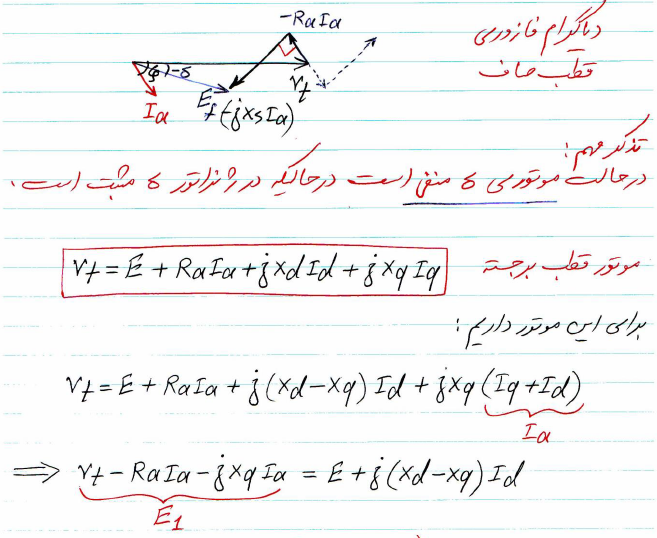 دیاگرام فازوری
قطب صاف
-RaIa
φ -δ
Vt
Ia
Ef (-jXsIa)
تذکر مهم:
در حالت موتوری δ منفی است در حالیکه در ژنراتور δ مثبت است.
موتور قطب برجسته
Vt = E + RaIa + jXdId + jXqIq
برای این موتور داریم:
Vt = E + RaIa + j(Xd-Xq)Id + jXq(Iq+Id)
Ia
⟹ Vt - RaIa - jXqIa = E + j(Xd-Xq)Id
E1